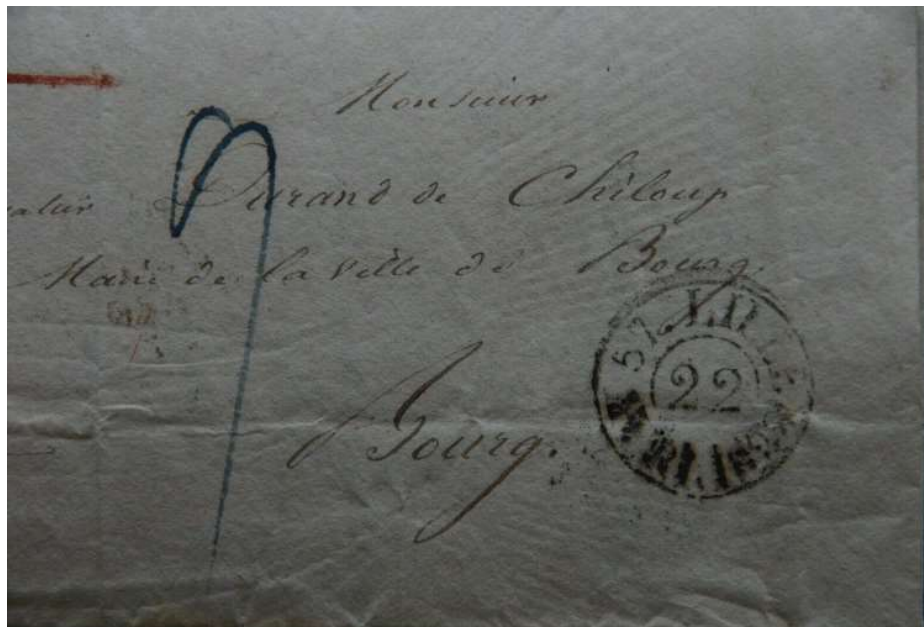 Monsieur
Durand de Chiloup
Maire de la Ville de Bourg.
Bourg.
57. LILLE
22
AVRIL